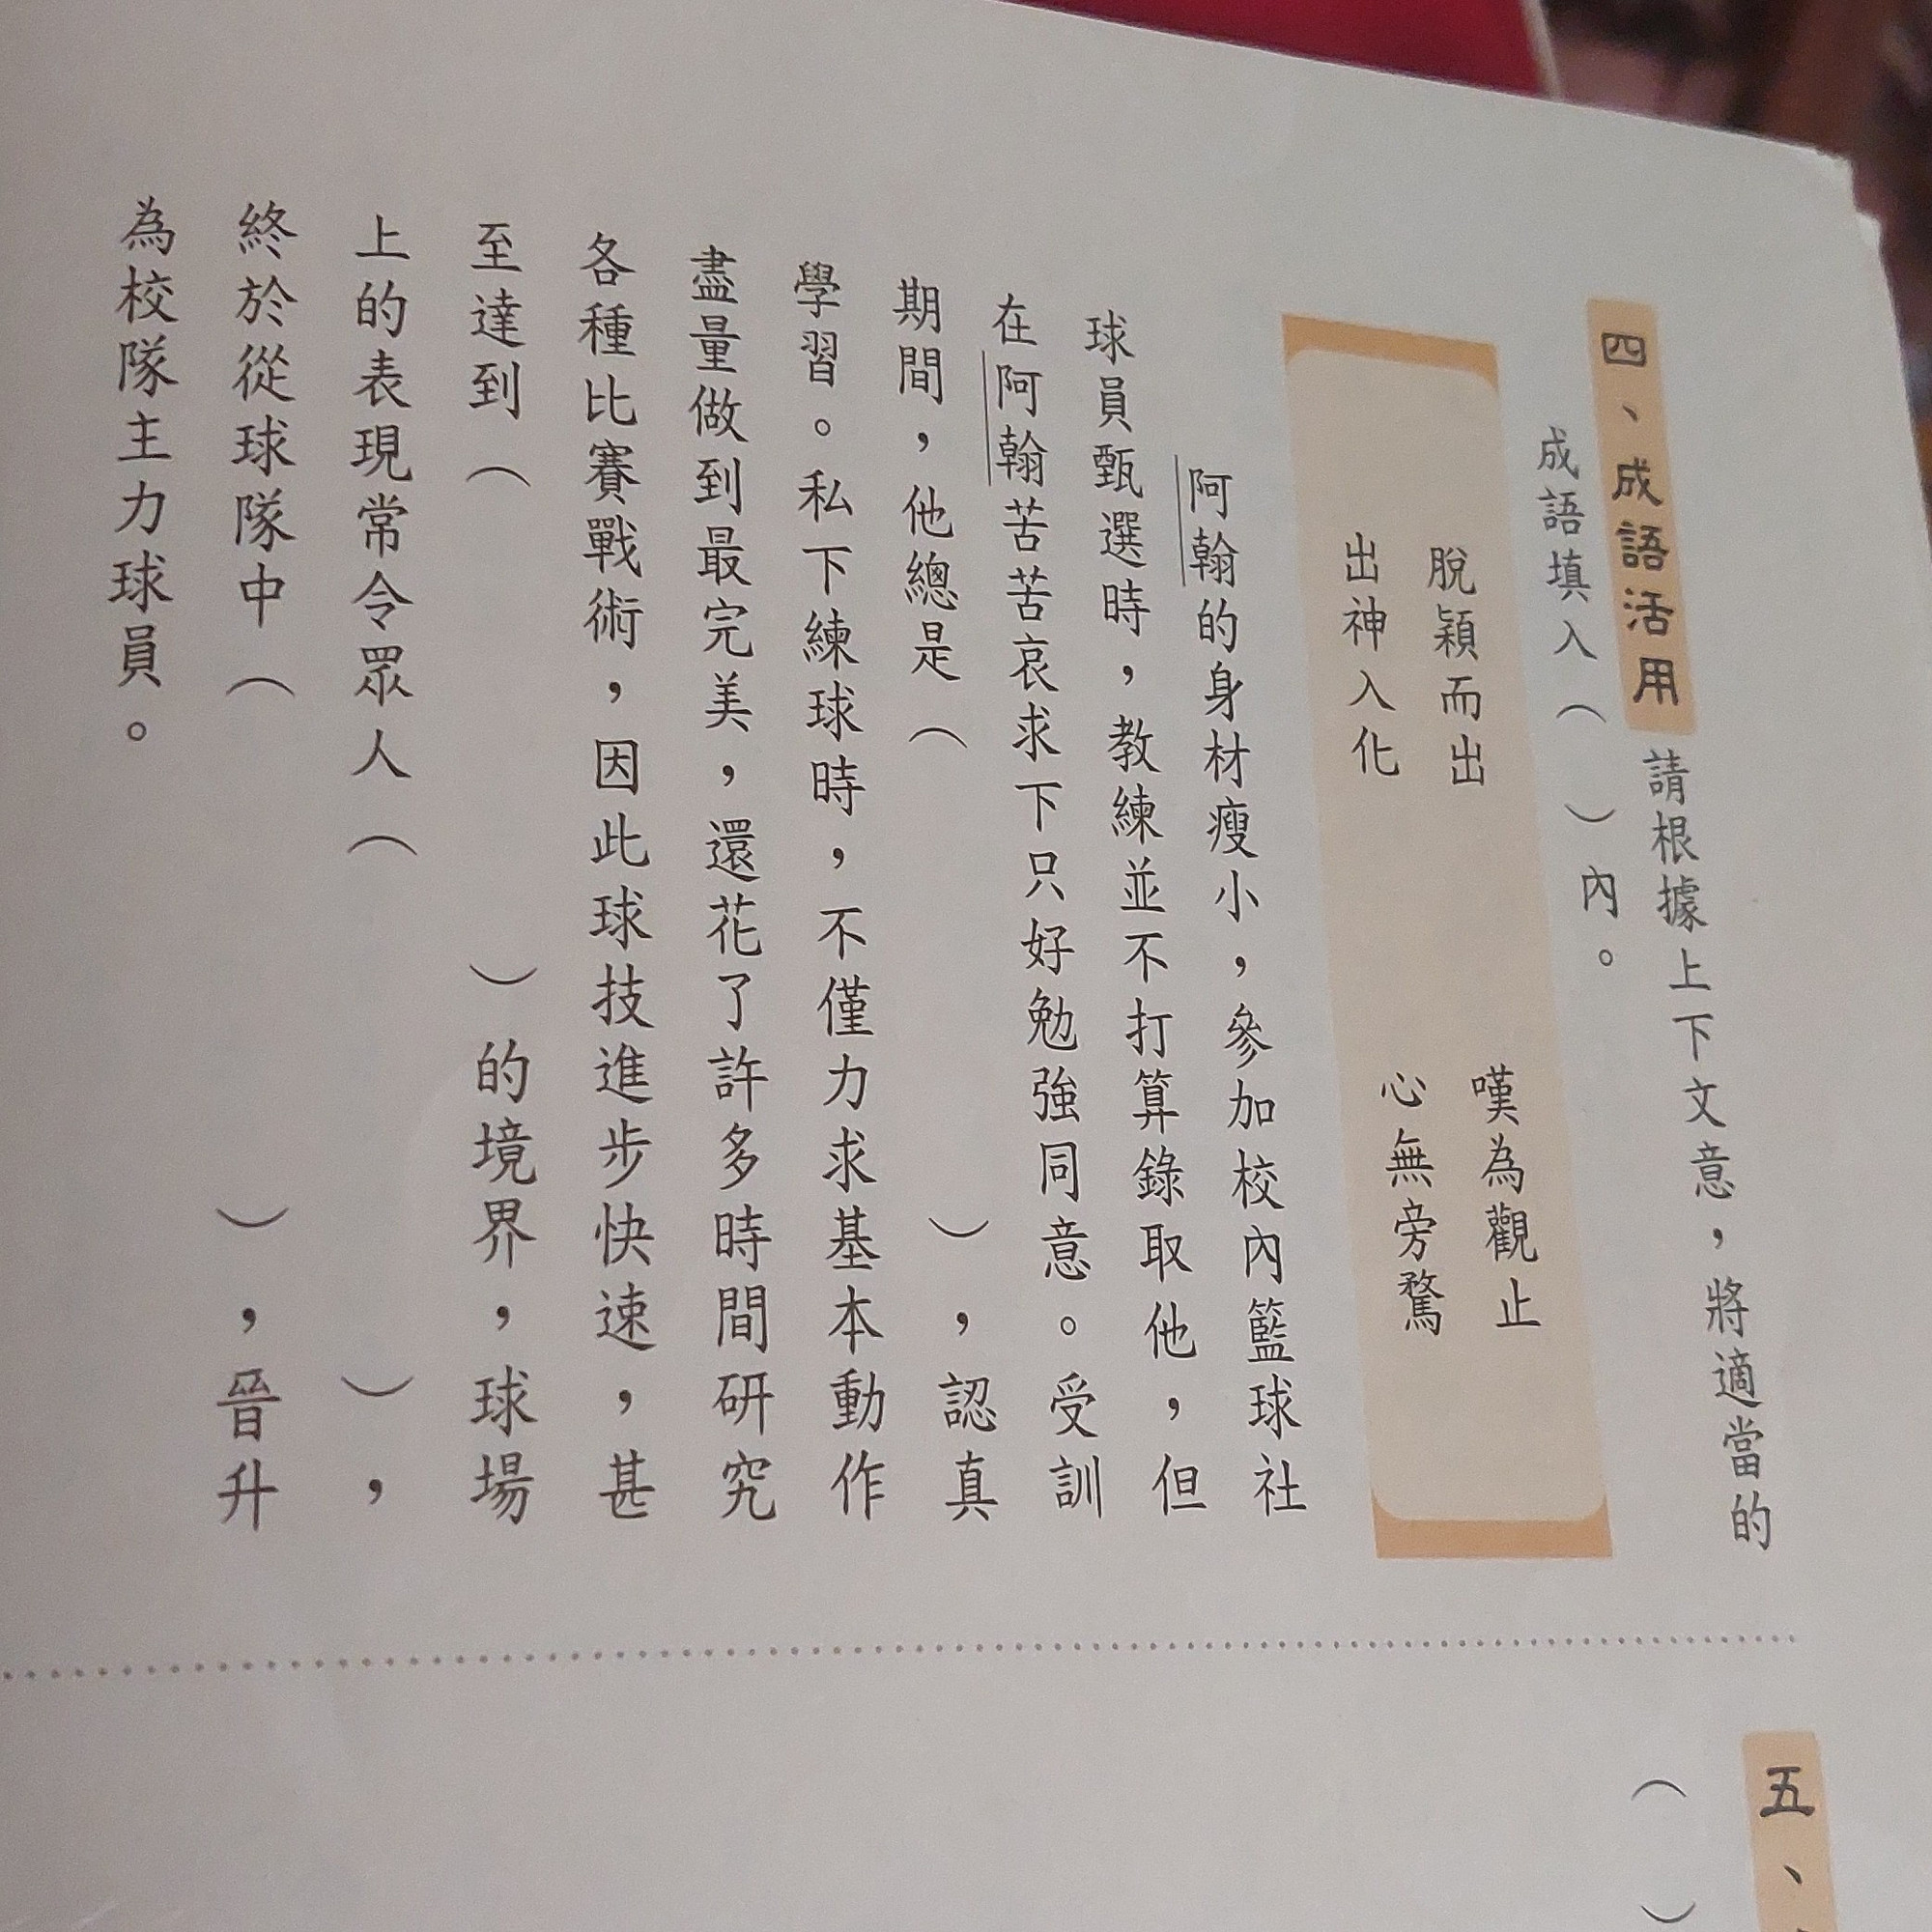 四、成語活用 請根據上下文意，將適當的
成語填入（ ）內。
脫穎而出 嘆為觀止
出神入化 心無旁騖
阿翰的身材瘦小，參加校內籃球社
球員甄選時，教練並不打算錄取他，但
在阿翰苦苦哀求下只好勉強同意。受訓
期間，他總是（ ），認真
學習。私下練球時，不僅力求基本動作
盡量做到最完美，還花了許多時間研究
各種比賽戰術，因此球技進步快速，甚
至達到（ ）的境界，球場
上的表現常令眾人（ ），
終於從球隊中（ ），晉升
為校隊主力球員。
五、
（ ）